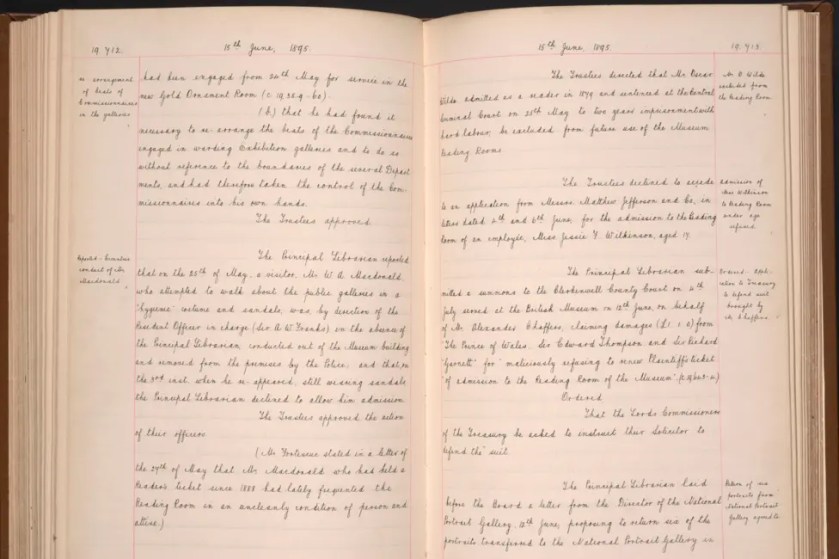 19,712.
15th June, 1895.
re arrangement
of beats of
Commissionaires
in the galleries
had been engaged from 20th May for service in the
new Gold Ornament Room
(b) that he had found it
necessary to re arrange the beats of the Commissionaires
engaged in warding Exhibition galleries and to do so
without reference to the boundaries of the several Depart
ments, and had therefore taken the control of the Com
missionaires into his own hands.
The Trustees approved
conduct of Mr
Macdonald
The Principal Librarian reported
that on the 25th of May, a visitor, Mr. W. A. Macdonald,
who attempted to walk about the public galleries in a
"hygienic" costume and sandals, was by direction of the
Resident Officer in charge (Sir A. W. Franks) in the absence of
the Principal Librarian conducted out of the Museum building
and removed from the premises by the Police; and that, on
the 3rd inst. when he re appeared, still wearing sandals
the Principal Librarian declined to allow him admission
The Trustees approved the action
of their officers
(Mr. Fortescue stated in a letter of
the 27th of May that Mr. Macdonald who had held a
Reader's ticket since 1888 had lately frequented the
Reading Room in an uncleanly condition of person and
attire.)
15th June, 1895.
19,713.
Mr O. Wilde
excluded from
the Reading Room
The Trustees directed that Mr. Oscar
Wilde, admitted as a reader in 1879 and sentenced at the Central
Criminal Court on 25th May to two years imprisonment with
hard labour, be excluded from future use of the Museum
Reading Rooms
Admission of
Miss Wilkinson
to Reading Room
under age
refused
The Trustees declined to accede
to an application from Messrs. Matthew Jefferson and Co, in
letters dated 4th and 6th June, for the admission to the Reading
room of an employee, Miss Jessie F. Wilkinson, aged 19.
to Treasury
to defend suit
brought by
A. Chaffers
The Principal Librarian sub-
mitted a summons to the Clerkenwell County Court on 4th
July served at the British Museum on 12th June, on behalf
of Mr. Alexander Chaffers, claiming damages from
"The Prince of Wales, Sir Edward Thompson and Sir Richard
Garnett" for "maliciously refusing to renew Plaintiff's ticket
"of admission to the Reading Room of the Museum"
Ordered
That the Lords Commissioners
of the Treasury be asked to instruct their Solicitor to
defend the suit
Return of
portraits from
National Portrait
Gallery agreed to
The Principal Librarian laid
before the Board a letter from the Director of the National
Portrait Gallery, 12th June, proposing to return six of the
portraits transferred to the National Portrait Gallery in